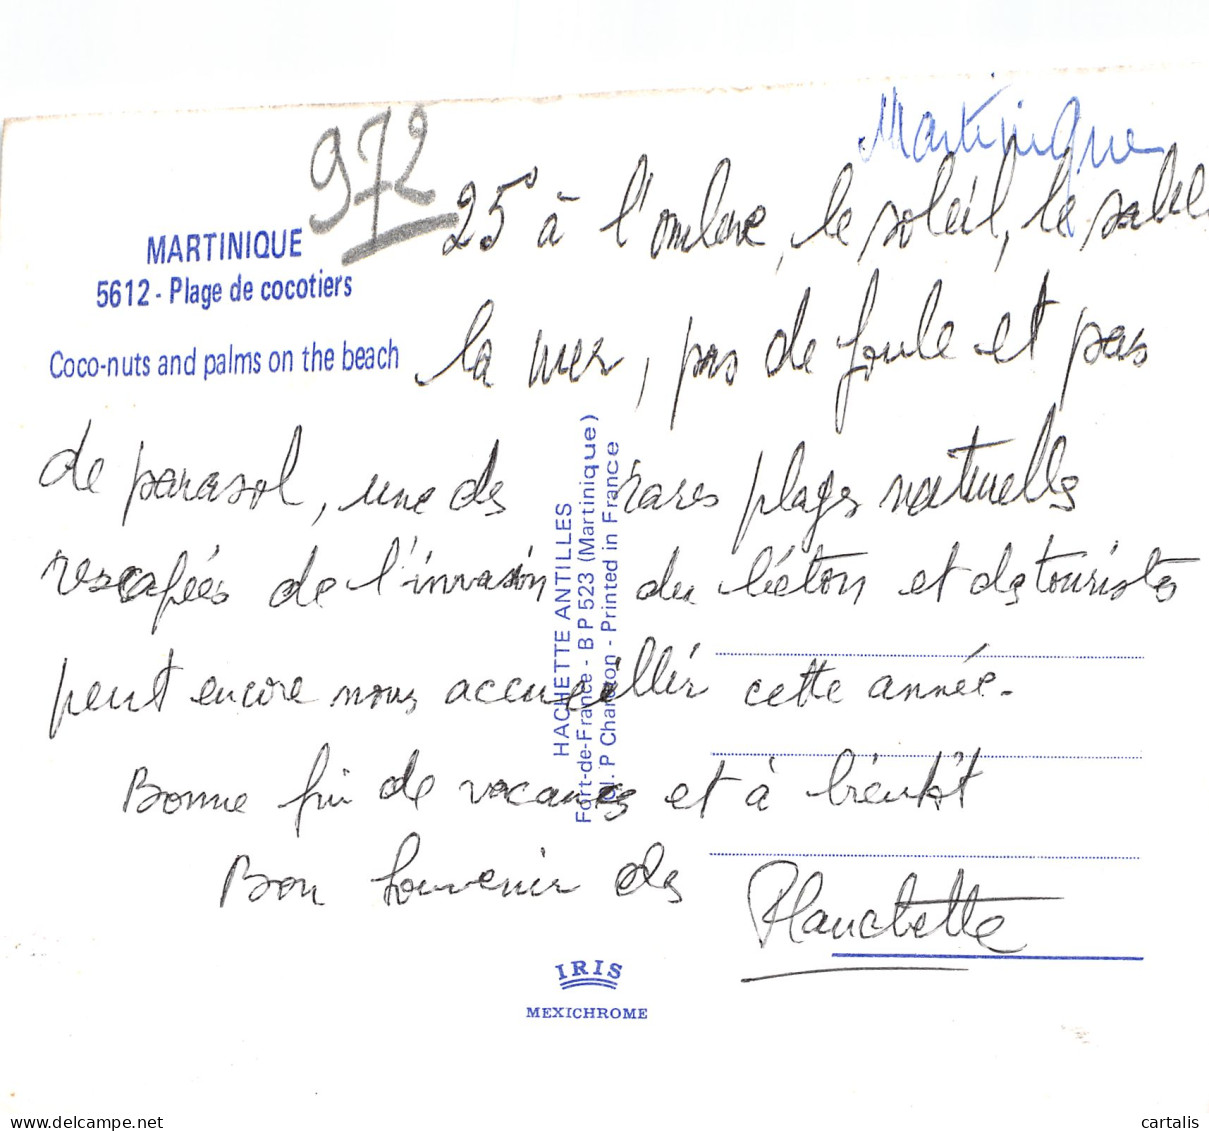 Martinique
972
25° à l'ombre, le soleil, le sable
MARTINIQUE
5612 - Plage de cocotiers
Coco-nuts and palms on the beach
la mer, pas de foule et pas
de parasol, une des rares plages naturelles
rescapées de l'invasion du béton et des touristes
peut encore nous accueillir cette année.
Bonne fin de vacances et à bientôt
Bon souvenir des Planchette
HACHETTE ANTILLES
Fort-de-France - B P 523 (Martinique)
P - Printed in France
IRIS
MEXICHROME
delcampe.net
cartalis